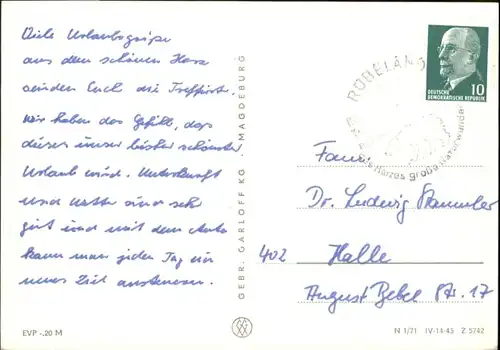 Viele Urlaubsgrüße
aus dem schönen Harz
senden Euch die
Wir haben das Gefühl, daß
dieses unser bisher schönster
Urlaub wird. Unterkunft
und Wetter sind sehr
gut und mit dem Auto
kann man jeden Tag ein
neues Ziel ansteuern.
EVP -,20 M
GEBR. GARLOFF KG · MAGDEBURG
RÜBELAND
des Harzes große Naturwunder
10
DEUTSCHE
DEMOKRATISCHE REPUBLIK
Fam.
Dr. Ludwig
402 Halle
August Bebel Str. 17
N 1/71 IV-14-45 Z 5742